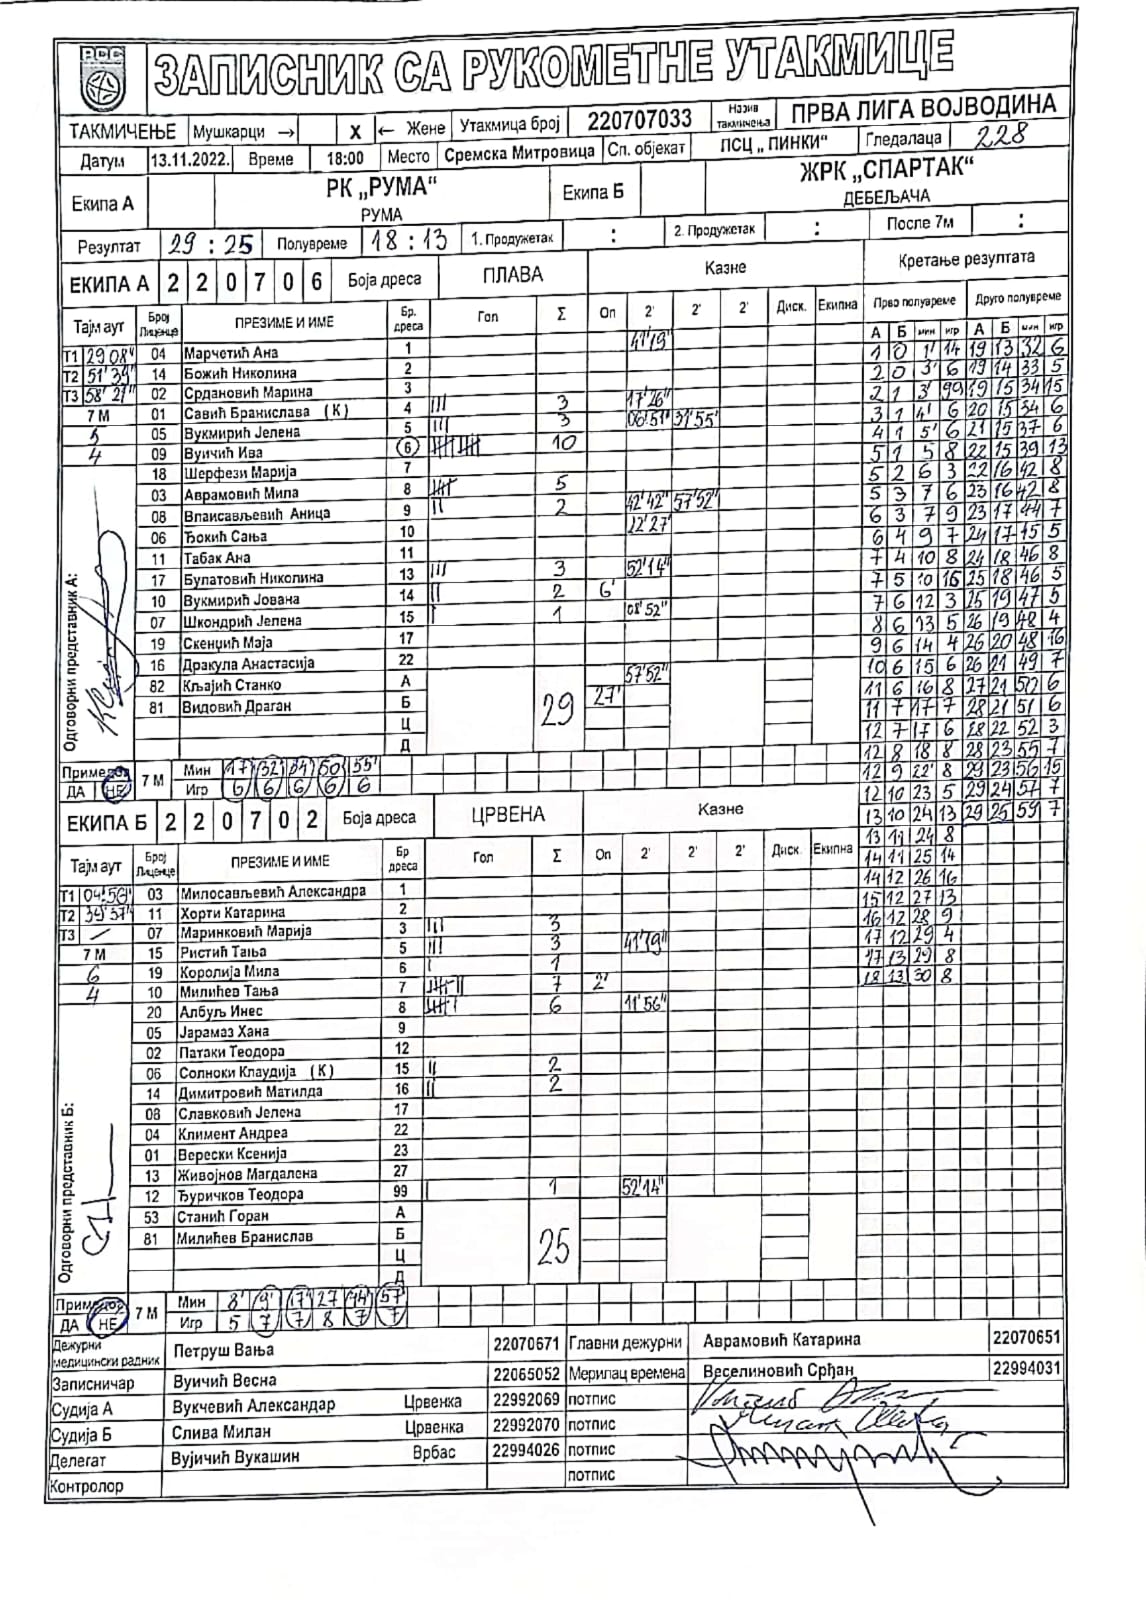 ЗАПИСНИК СА РУКОМЕТНЕ УТАКМИЦЕ
ТАКМИЧЕЊЕ Мушкарци → X ← Жене Утакмица број 220707033 Назив такмичења ПРВА ЛИГА ВОЈВОДИНА
Датум 13.11.2022. Време 18:00 Место Сремска Митровица Сп. објекат ПСЦ „ ПИНКИ“ Гледалаца 228
Екипа А РК „РУМА“ РУМА Екипа Б ЖРК „СПАРТАК“ ДЕБЕЉАЧА
Резултат 29 : 25 Полувреме 18 : 13 1. Продужетак : 2. Продужетак : После 7м :
ЕКИПА А 2 2 0 7 0 6 Боја дреса ПЛАВА Казне Кретање резултата
Тајм аут Број Лиценце ПРЕЗИМЕ И ИМЕ Бр. дреса Гол Σ Оп 2' 2' 2' Диск. Екипна Прво полувреме Друго полувреме
А Б мин игр А Б мин игр
Т1 29 08" 04 Марчетић Ана 1 41'19" 1 0 1' 14 19 13 32 6
Т2 51' 39" 14 Божић Николина 2 2 0 3' 6 19 14 33 5
Т3 58' 21" 02 Срдановић Марина 3 2 1 3' 99 19 15 34 15
7 М 01 Савић Бранислава ( К ) 4 III 3 17'26" 3 1 4' 6 20 15 34 6
5 05 Вукмирић Јелена 5 III 3 06'51" 31'55" 4 1 5' 6 21 15 37 6
4 09 Вуичић Ива 6 10 5 1 5 8 22 15 39 13
18 Шерфези Марија 7 5 2 6 3 22 16 42 8
03 Аврамовић Мила 8 5 5 3 7 6 23 16 42 8
08 Влаисављевић Аница 9 II 2 42'42" 57'52" 6 3 7 9 23 17 44 7
06 Ђокић Сања 10 22'27" 6 4 9 7 24 17 45 5
11 Табак Ана 11 7 4 10 8 24 18 46 8
17 Булатовић Николина 13 III 3 52'14" 7 5 10 16 25 18 46 5
10 Вукмирић Јована 14 II 2 6' 7 6 12 3 25 19 47 5
07 Шкондрић Јелена 15 I 1 08'52" 8 6 13 5 26 19 48 4
19 Скенџић Маја 17 9 6 14 4 26 20 48 16
16 Дракула Анастасија 22 10 6 15 6 26 21 49 7
82 Кљајић Станко А 57'52" 11 6 16 8 27 21 50 6
81 Видовић Драган Б 29 27' 11 7 17 7 28 21 51 6
Ц 12 7 17 6 28 22 52 3
Д 12 8 18 8 28 23 55 7
Одговорни представник А:
Примедба 7 М Мин 17' 32' 34' 50' 55' 12 9 22' 8 29 23 56 15
ДА НЕ Игр 6 6 6 6 6 12 10 23 5 29 24 57 7
ЕКИПА Б 2 2 0 7 0 2 Боја дреса ЦРВЕНА Казне 13 10 24 13 29 25 59 7
13 11 24 8
Тајм аут Број Лиценце ПРЕЗИМЕ И ИМЕ Бр дреса Гол Σ Оп 2' 2' 2' Диск. Екипна 14 11 25 14
14 12 26 16
Т1 04:56" 03 Милосављевић Александра 1 15 12 27 13
Т2 39'57" 11 Хорти Катарина 2 16 12 28 9
Т3 – 07 Маринковић Марија 3 III 3 17 12 29 4
7 М 15 Ристић Тања 5 III 3 41'19" 17 13 29 8
6 19 Королија Мила 6 I 1 18 13 30 8
4 10 Милићев Тања 7 7 2'
20 Албуљ Инес 8 6 11'56"
05 Јарамаз Хана 9
02 Патаки Теодора 12
06 Солноки Клаудија ( К ) 15 II 2
14 Димитровић Матилда 16 II 2
08 Славковић Јелена 17
04 Климент Андреа 22
01 Верески Ксенија 23
13 Живојнов Магдалена 27
12 Ђуричков Теодора 99 I 1 52'14"
53 Станић Горан А
81 Милићев Бранислав Б 25
Ц
Д
Одговорни представник Б:
Примедба 7 М Мин 8' 9' 17' 27 44' 57'
ДА НЕ Игр 5 7 7 8 7 7
Дежурни медицински радник Петруш Вања 22070671 Главни дежурни Аврамовић Катарина 22070651
Записничар Вуичић Весна 22065052 Мерилац времена Веселиновић Срђан 22994031
Судија А Вукчевић Александар Црвенка 22992069 потпис
Судија Б Слива Милан Црвенка 22992070 потпис
Делегат Вујичић Вукашин Врбас 22994026 потпис
Контролор потпис